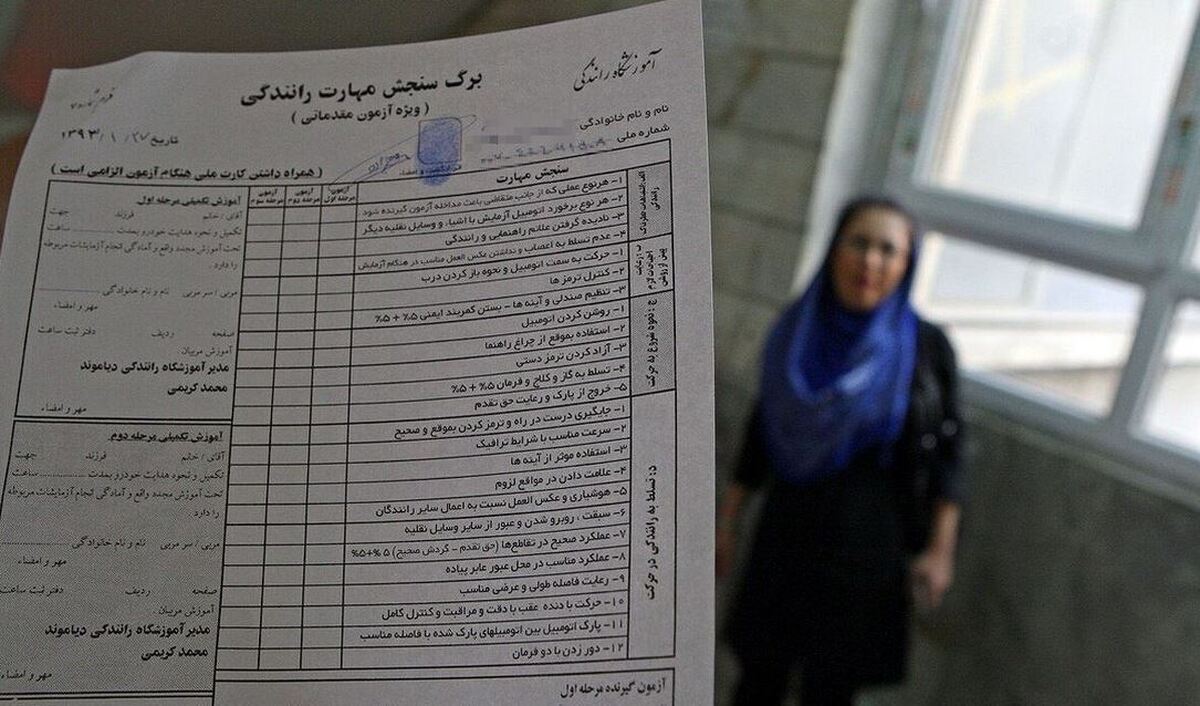 آموزشگاه رانندگی
برگ سنجش مهارت رانندگی
( ویژه آزمون مقدماتی )
تاریخ ۱۳۹۳/۱/۲۷
نام و نام خانوادگی
شماره ملی
( همراه داشتن کارت ملی هنگام آزمون الزامی است )
سنجش مهارت
آزمون مرحله اول
آزمون مرحله دوم
آزمون مرحله سوم
۱- هرنوع عملی که از جانب متقاضی باعث مداخله آزمون گیرنده شود
۲- هر نوع برخورد اتومبیل آزمایش با اشیاء و وسایل نقلیه دیگر
۳- نادیده گرفتن علائم راهنمایی و رانندگی
۴- عدم تسلط به اعصاب و نداشتن عکس العمل مناسب در هنگام آزمایش
۱- حرکت به سمت اتومبیل و نحوه باز کردن درب
۲- کنترل ترمز ها
۳- تنظیم صندلی و آینه ها - بستن کمربند ایمنی ۵% + ۵%
ج : نحوه شروع به حرکت
۱- روشن کردن اتومبیل
۲- استفاده بموقع از چراغ راهنما
۳- آزاد کردن ترمز دستی
۴- تسلط به گاز و کلاج و فرمان ۵% + ۵%
۵- خروج از پارک و رعایت حق تقدم
د : تسلط به رانندگی در حرکت
۱- جایگیری درست در راه و ترمز کردن بموقع و صحیح
۲- سرعت مناسب با شرایط ترافیک
۳- استفاده موثر از آینه ها
۴- علامت دادن در مواقع لزوم
۵- هوشیاری و عکس العمل نسبت به اعمال سایر رانندگان
۶- سبقت ، روبرو شدن و عبور از سایر وسایل نقلیه
۷- عملکرد صحیح در تقاطع‌ها (حق تقدم - گردش صحیح) ۵%+۵%
۸- عملکرد مناسب در محل عبور عابر پیاده
۹- رعایت فاصله طولی و عرضی مناسب
۱۰- حرکت با دنده عقب با دقت و مراقبت و کنترل کامل
۱۱- پارک اتومبیل بین اتومبیلهای پارک شده با فاصله مناسب
۱۲- دور زدن با دو فرمان
آزمون گیرنده مرحله اول
آموزش تکمیلی مرحله اول
آقای / خانم فرزند جهت
تکمیل و نحوه هدایت خودرو بمدت ........ ساعت
تحت آموزش مجدد واقع و آمادگی انجام آزمایشات مربوطه
را دارد .
مربی / سر مربی نام و نام خانوادگی
مهر و امضاء
صفحه ردیف دفتر ثبت ساعت
آموزش مربیان
مدیر آموزشگاه رانندگی دیاموند
محمد کریمی
مهر و امضاء
آموزش تکمیلی مرحله دوم
آقای / خانم فرزند جهت
تکمیل و نحوه هدایت خودرو بمدت ........ ساعت
تحت آموزش مجدد واقع و آمادگی انجام آزمایشات مربوطه
را دارد .
مربی / سر مربی نام و نام خانوادگی
مهر و امضاء
صفحه ردیف دفتر ثبت ساعت
آموزش مربیان
مدیر آموزشگاه رانندگی دیاموند
محمد کریمی
مهر و امضاء